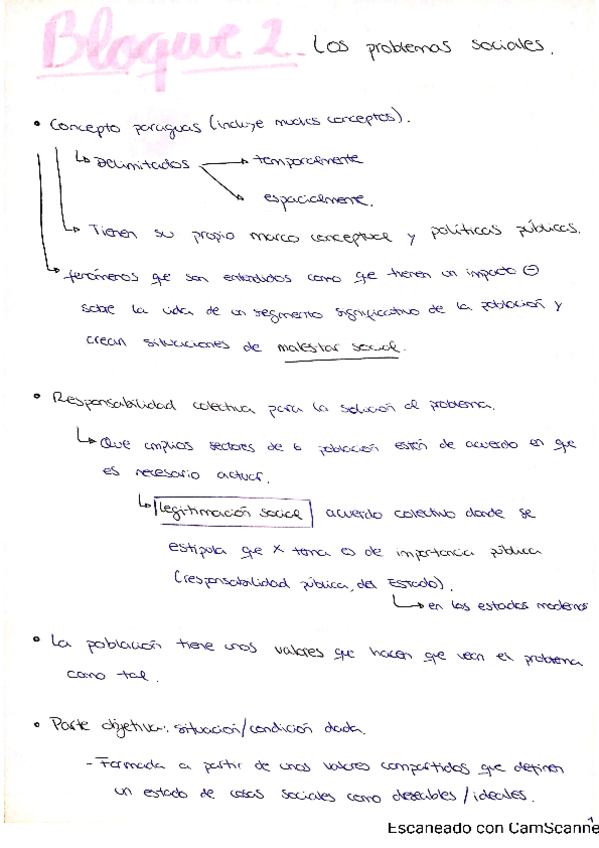 Bloque 2. Los problemas sociales.
• Concepto paraguas (incluye muchos conceptos).
↳ Delimitados → temporalmente
→ espacialmente.
↳ Tienen su propio marco conceptual y políticas públicas.
↳ fenómenos que son entendidos como que tienen un impacto ⊖
sobre la vida de un segmento significativo de la población y
crean situaciones de malestar social.
• Responsabilidad colectiva para la solución al problema.
↳ Que amplios sectores de la población estén de acuerdo en que
es necesario actuar.
↳ legitimación social acuerdo colectivo donde se
estipula que X tema es de importancia pública
(responsabilidad pública, del Estado).
↳ en los estados modernos
• La población tiene unos valores que hacen que vean el problema
como tal.
• Parte objetiva: situación/condición dada.
- Formada a partir de unos valores compartidos que definen
un estado de cosas sociales como deseables / ideales.
Escaneado con CamScanne